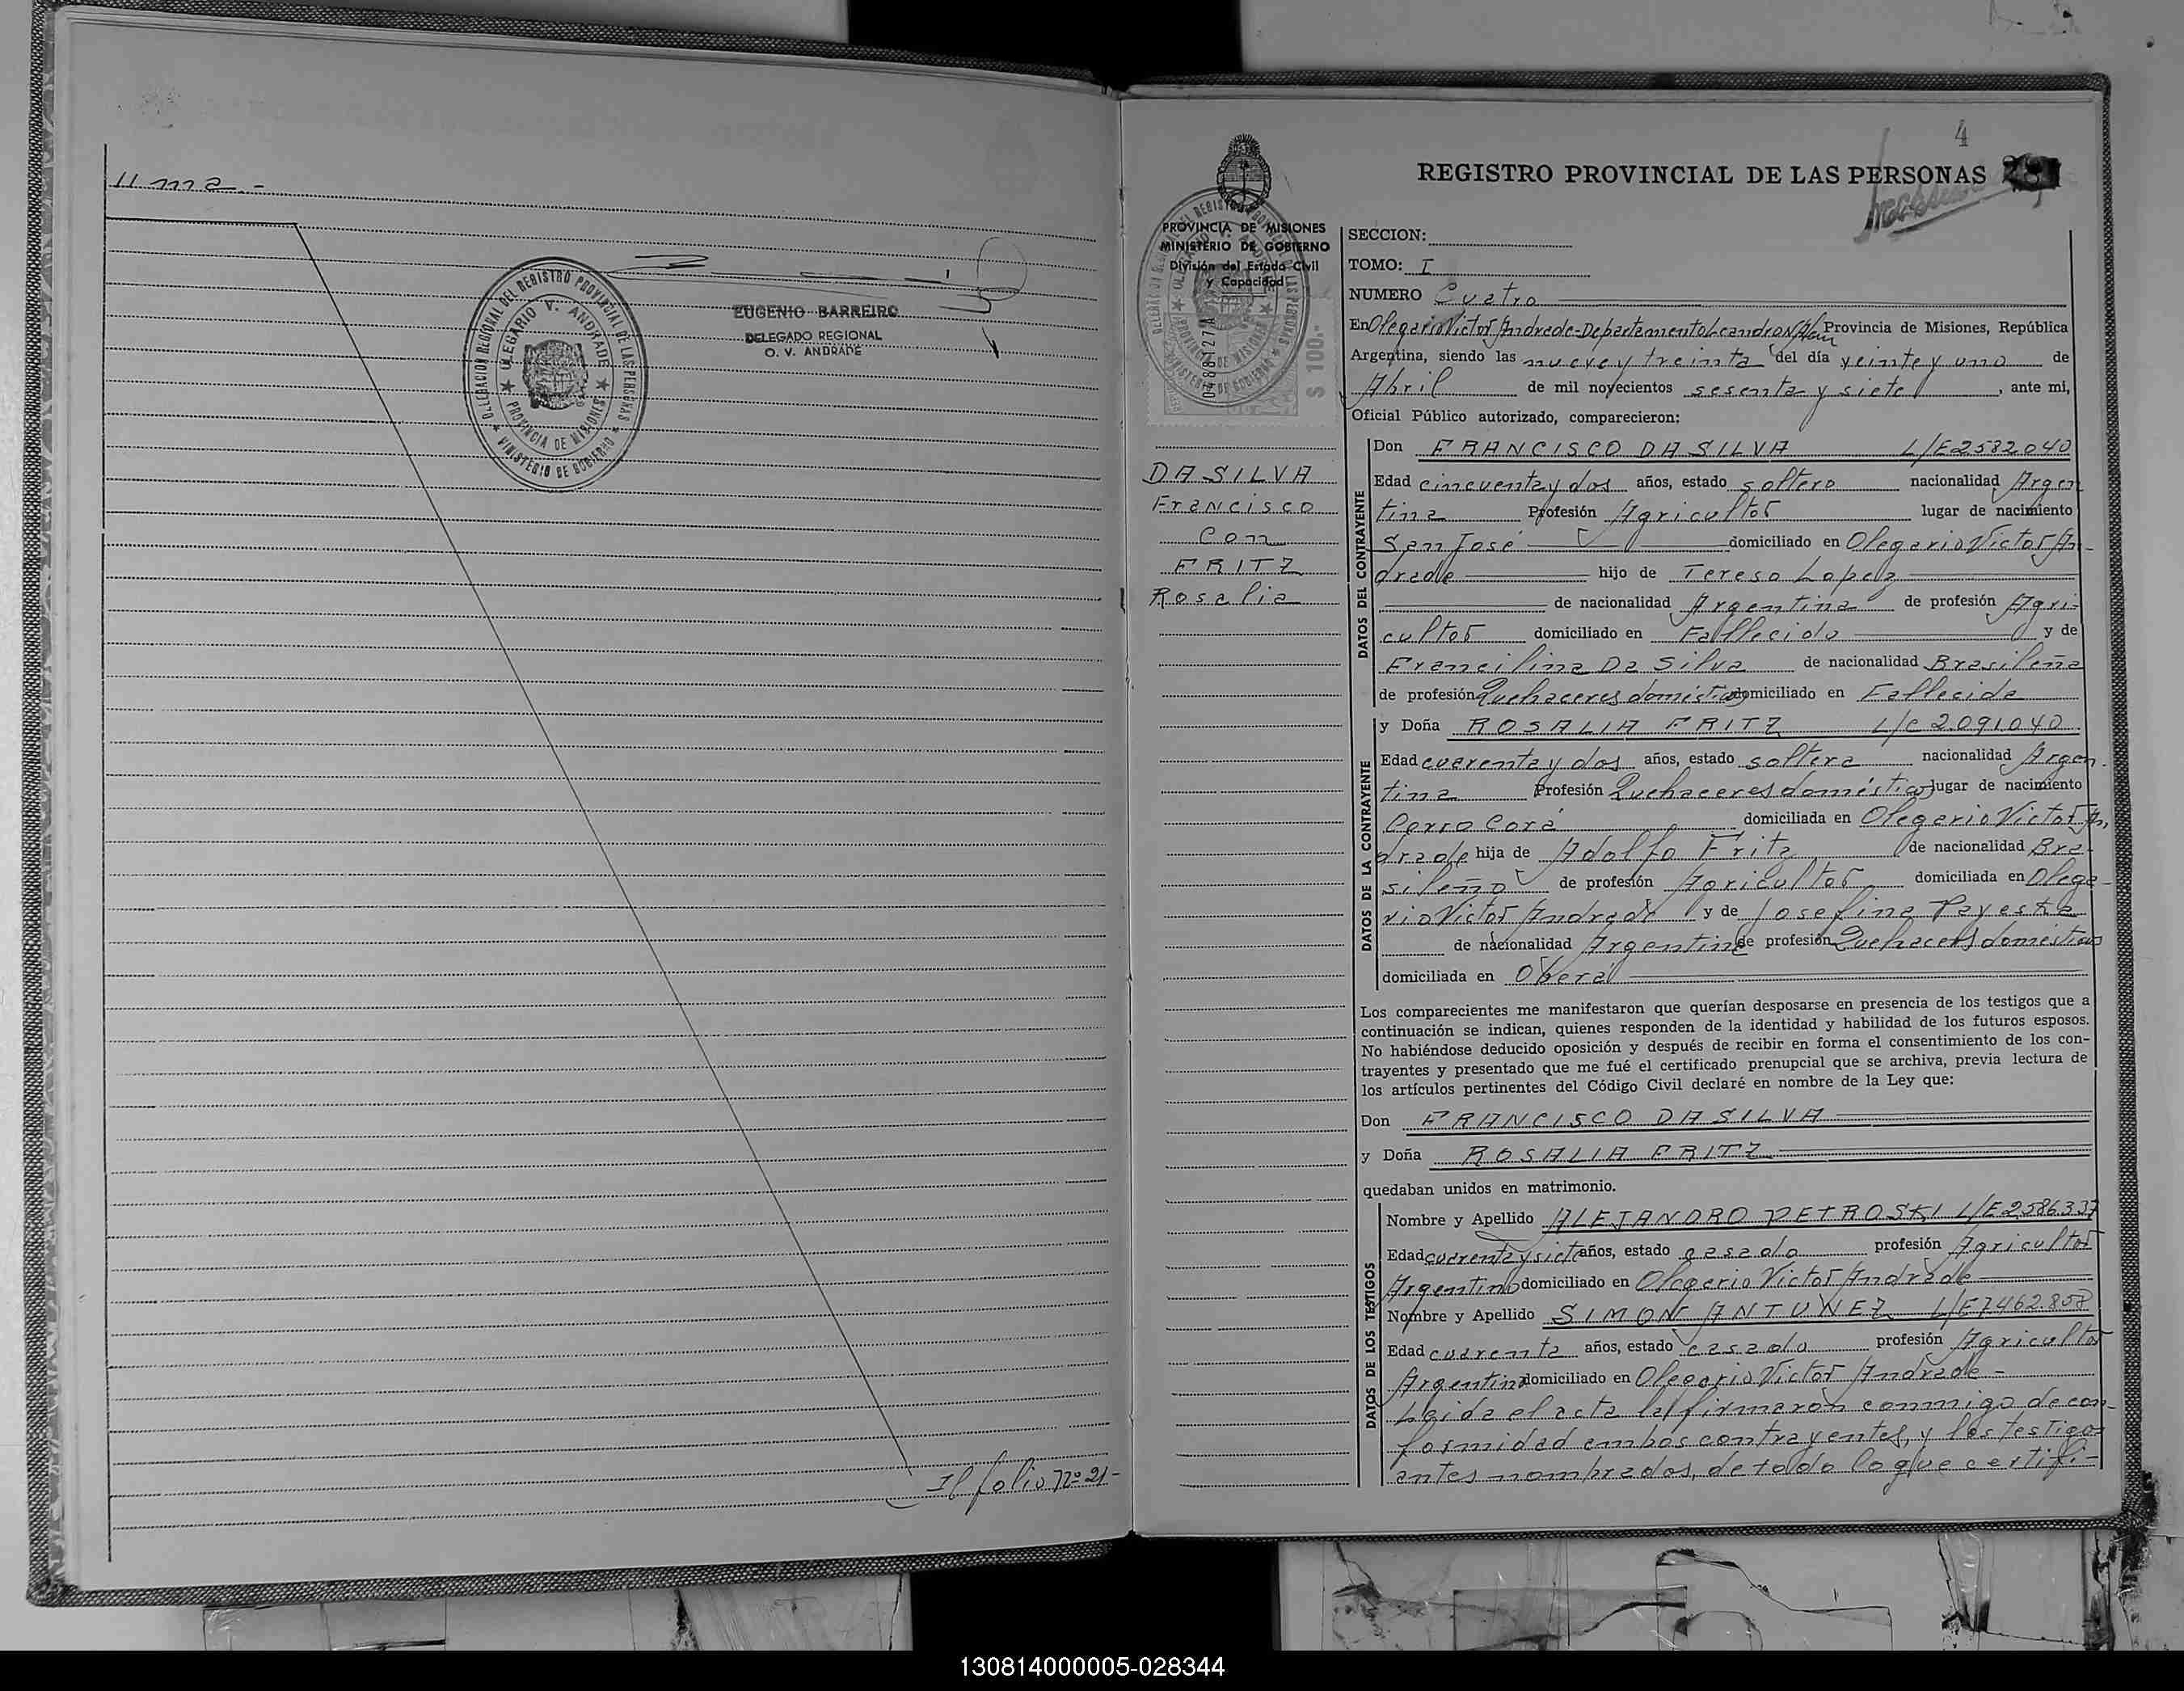 11 ma.-
EUGENIO BARREIRO
DELEGADO REGIONAL
O. V. ANDRADE
DELEGACION REGIONAL DEL REGISTRO PROVINCIAL DE LAS PERSONAS
★ MINISTERIO DE GOBIERNO ★
OLEGARIO V. ANDRADE
★ PROVINCIA DE MISIONES ★
Al folio Nº 21-
4
REGISTRO PROVINCIAL DE LAS PERSONAS
PROVINCIA DE MISIONES
MINISTERIO DE GOBIERNO
División del Estado Civil
y Capacidad
$ 100.-
DA SILVA
Francisco
Con
FRITZ
Rosalia
SECCION:
TOMO: I
NUMERO Cuatro
En Olegario Victor Andrade-Departamento Leandro N. Alem Provincia de Misiones, República
Argentina, siendo las nueve y treinta del día veinte y uno de
Abril de mil novecientos sesenta y siete, ante mi,
Oficial Público autorizado, comparecieron:
DATOS DEL CONTRAYENTE
Don FRANCISCO DA SILVA L/E 2582040
Edad cincuenta y dos años, estado soltero nacionalidad Argen
tina Profesión Agricultor lugar de nacimiento
San José domiciliado en Olegario Victor An-
drade hijo de Tereso Lopez
de nacionalidad Argentina de profesión Agri-
cultor domiciliado en Fallecido y de
Francilina Da Silva de nacionalidad Brasileña
de profesión Quehaceres domésticos domiciliado en Fallecida
DATOS DE LA CONTRAYENTE
y Doña ROSALIA FRITZ L/C 2.091.040
Edad cuarenta y dos años, estado soltera nacionalidad Argen-
tina Profesión Quehaceres domésticos lugar de nacimiento
Cerro Corá domiciliada en Olegario Victor An,
drade hija de Adolfo Fritz de nacionalidad Bra-
sileño de profesión Agricultor domiciliada en Olega-
rio Victor Andrade y de Josefina Payeska
de nacionalidad Argentina de profesión Quehaceres domésticos
domiciliada en Oberá
Los comparecientes me manifestaron que querían desposarse en presencia de los testigos que a
continuación se indican, quienes responden de la identidad y habilidad de los futuros esposos.
No habiéndose deducido oposición y después de recibir en forma el consentimiento de los con-
trayentes y presentado que me fué el certificado prenupcial que se archiva, previa lectura de
los artículos pertinentes del Código Civil declaré en nombre de la Ley que:
Don FRANCISCO DA SILVA
y Doña ROSALIA FRITZ
quedaban unidos en matrimonio.
DATOS DE LOS TESTIGOS
Nombre y Apellido ALEJANDRO PETROSKI L/E 2586337
Edad cuarenta y siete años, estado casado profesión Agricultor
Argentino domiciliado en Olegario Victor Andrade
Nombre y Apellido SIMON ANTUNEZ L/E 7.462.858
Edad cuarenta años, estado casado profesión Agricultor
Argentino domiciliado en Olegario Victor Andrade -
Leida el acta la firmaron conmigo de con-
formidad ambos contrayentes, y los testigos
antes nombrados, de todo lo que certifi-
130814000005-028344